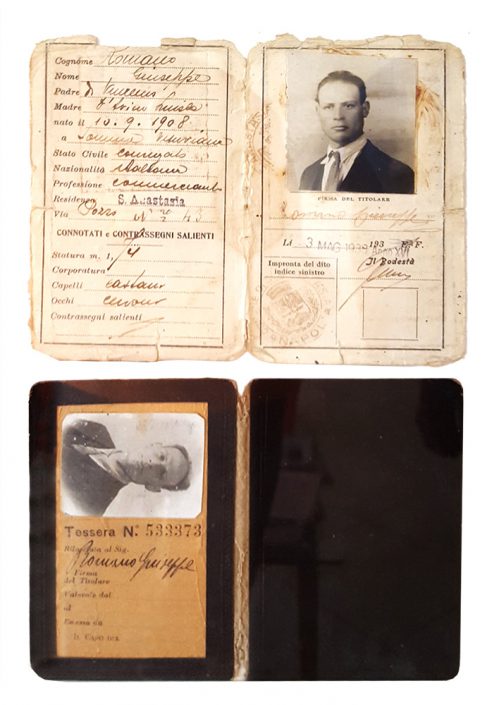 Cognome Romano
Nome Giuseppe
Padre di Vincenzo
Madre D'
nato il 10.9.1908
a Somma Vesuviana
Stato Civile coniugato
Nazionalità Italiana
Professione commerciante
Residenza S. Anastasia
Via Pozzo N° 43
CONNOTATI e CONTRASSEGNI SALIENTI
Statura m. 1,
Corporatura
Capelli castani
Occhi
Contrassegni salienti
FIRMA DEL TITOLARE
Romano Giuseppe
Lì 3 MAG 1939 193 F.
ANNO XVII
Impronta del dito
indice sinistro
Il Podestà
NAPOLI
Tessera N. 533373
Rilasciata al Sig.
Romano Giuseppe
Firma
del Titolare
Valevole dal
al
Emessa da
IL CAPO DEL